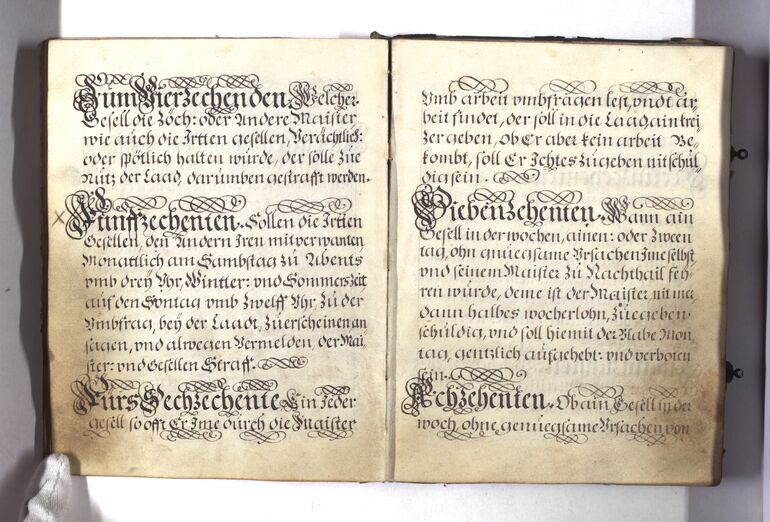 Zum Vierzechenden. Welcher
Gesell die Zöch: oder Andere Maister
wie auch die Irtten gesellen Verächtlich:
oder spötlich halten würde, der solle Züe
Nutz der Laad, darumben gestrafft werden.
Fünffzechenten. Sollen die Irtten
Gesellen, den Andern Iren mitverwanten
Monattlich am Sambstag Zu Abents
vmb drey Vhr, Wintter: vnd Sommerszeit
auf den Sontag vmb Zwelff Vhr, Zu der
Vmbfrag, bey der Laadt, Zuerscheinen an
sagen, vnd alwegen Vermelden der Mai
ster: vnd Gesellen Straff.
Fürs Sechzechente Ein Jeder
gesell so offt Er Ime durch die Maister
Vmb arbeit vmbfragen lest, vndt ar,
beit findet, der soll in die Laad, ain krei
Zer geben, ob Er aber kein arbeit Be,
kombt, soll Er Ichtes Zugeben nit schul
dig sein.
Siebenzehenten. Wann ain
Gesell in der wochen, ainen: oder Zween
tag, ohn gnuegsame Vrsachen Ime selbst
vnd seinem Maister Zu Nachthail feh,
ren würde, deme ist der Maister, nit mer
dann halbes wocherlohn, Zuegeben
schuldig, vnd soll hiemit der Blabe Mon
tag, gentzlich aufgehebt: vnd verboten
sein.
Achzehenten. Ob ain Gesell in der
woch, ohne genuegsame Vrsachen von